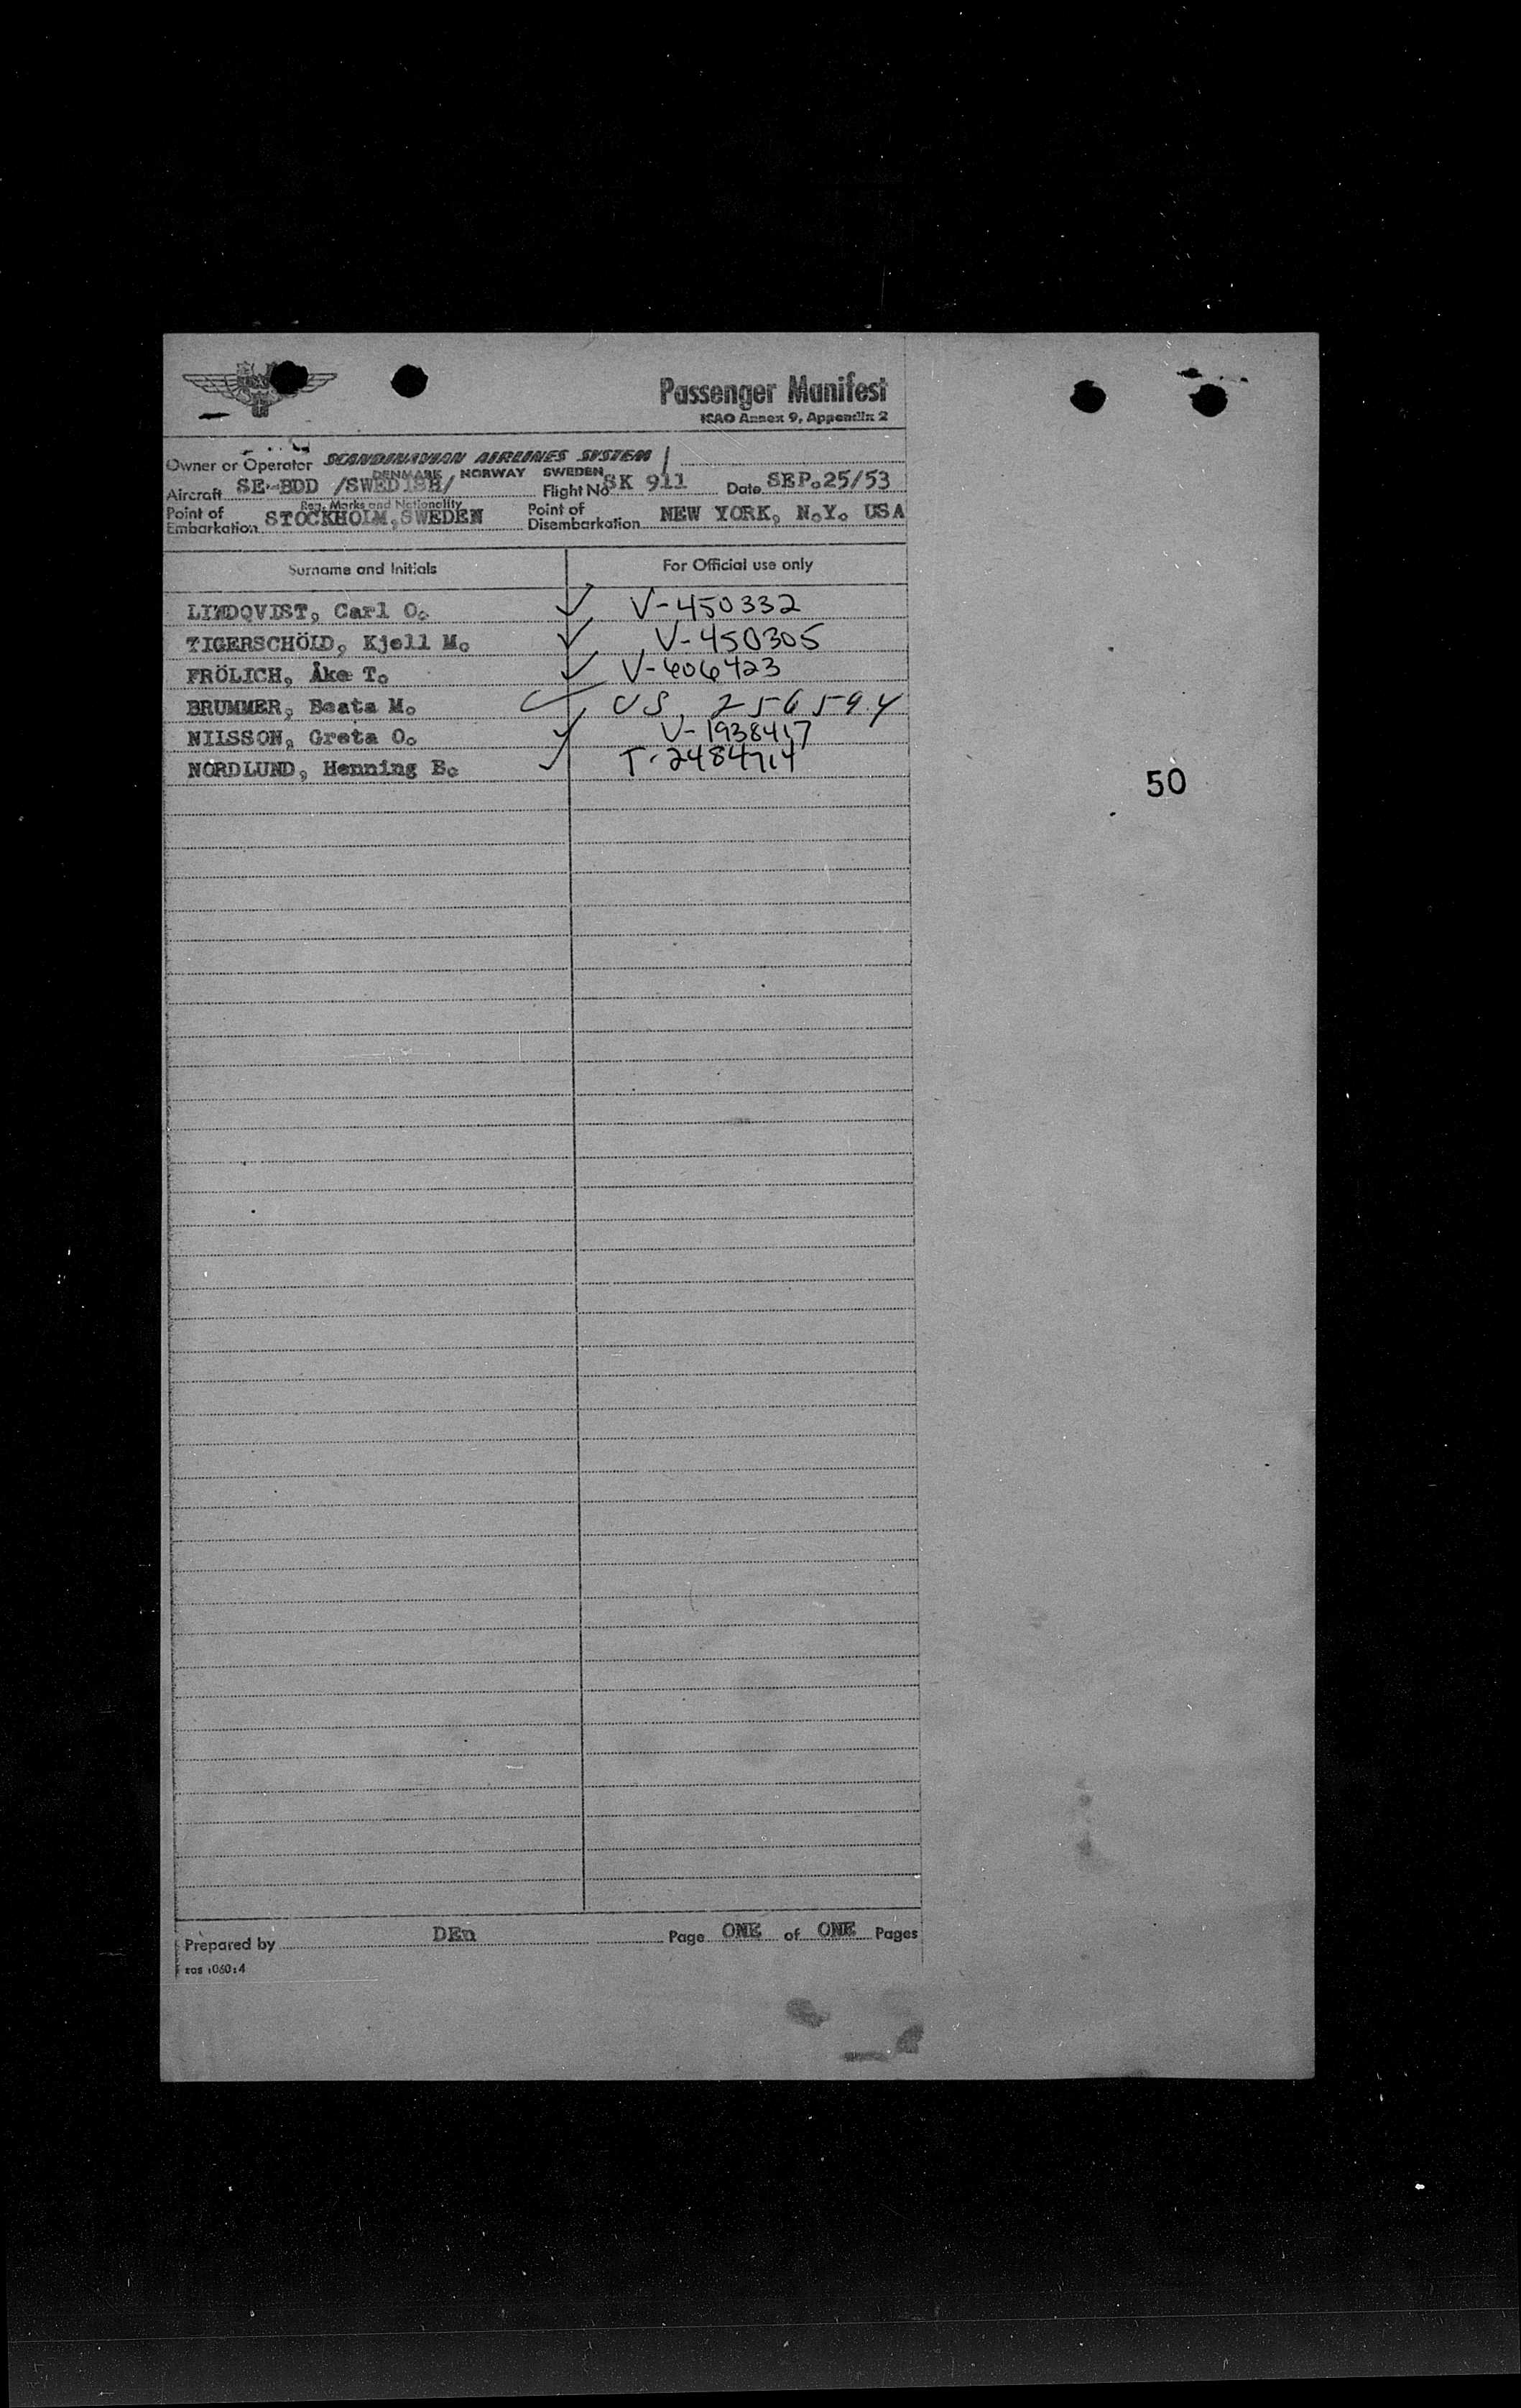 Passenger Manifest
ICAO Annex 9, Appendix 2
Owner or Operator SCANDINAVIAN AIRLINES SYSTEM
DENMARK NORWAY SWEDEN
Aircraft SE-BDD /SWEDISH/ Flight No SK 911 Date SEP.25/53
Reg. Marks and Nationality
Point of Embarkation STOCKHOLM, SWEDEN Point of Disembarkation NEW YORK, N.Y. USA
Surname and Initials For Official use only
LINDQVIST, Carl O. ✓ V-450332
TIGERSCHÖLD, Kjell M. ✓ V-450305
FRÖLICH, Åke T. ✓ V-606423
BRUMMER, Beata M. ✓ US, 256594
NILSSON, Greta O. ✓ V-1938417
NORDLUND, Henning B. ✓ T-2484714
50
Prepared by DEn Page ONE of ONE Pages